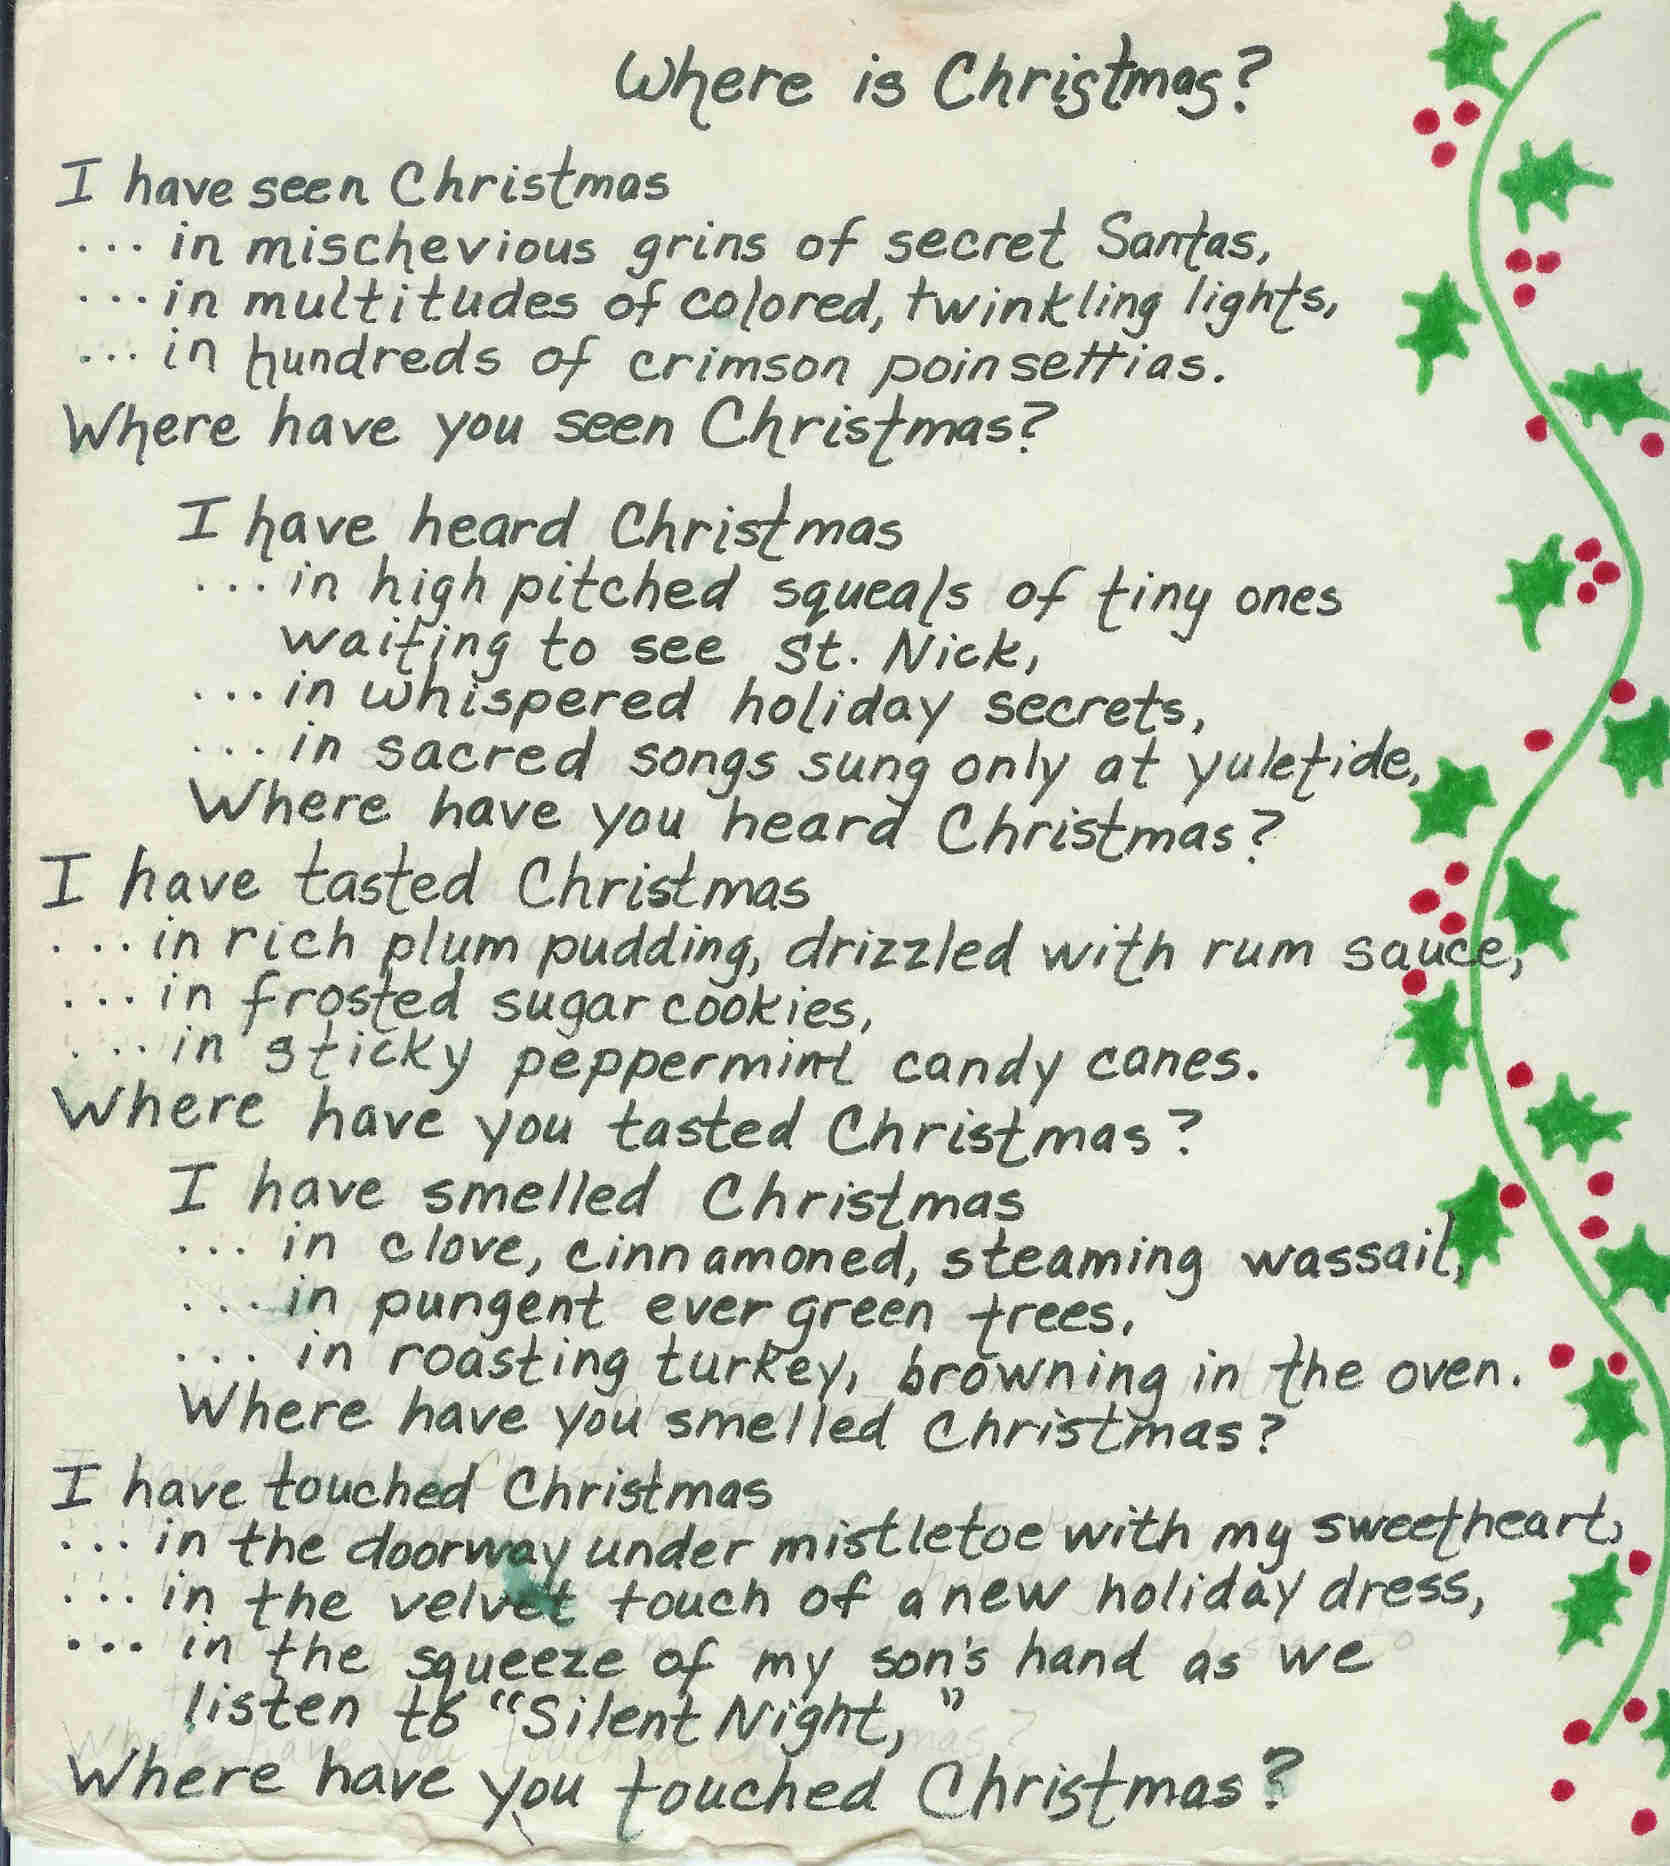 Where is Christmas?
I have seen Christmas
... in mischevious grins of secret Santas,
... in multitudes of colored, twinkling lights,
... in hundreds of crimson poinsettias.
Where have you seen Christmas?
I have heard Christmas
... in high pitched squeals of tiny ones
waiting to see St. Nick,
... in whispered holiday secrets,
... in sacred songs sung only at yuletide,
Where have you heard Christmas?
I have tasted Christmas
... in rich plum pudding, drizzled with rum sauce,
... in frosted sugar cookies,
... in sticky peppermint candy canes.
Where have you tasted Christmas?
I have smelled Christmas
... in clove, cinnamoned, steaming wassail,
... in pungent evergreen trees,
... in roasting turkey, browning in the oven.
Where have you smelled Christmas?
I have touched Christmas
... in the doorway under mistletoe with my sweetheart,
... in the velvet touch of a new holiday dress,
... in the squeeze of my son's hand as we
listen to "Silent Night,"
Where have you touched Christmas?